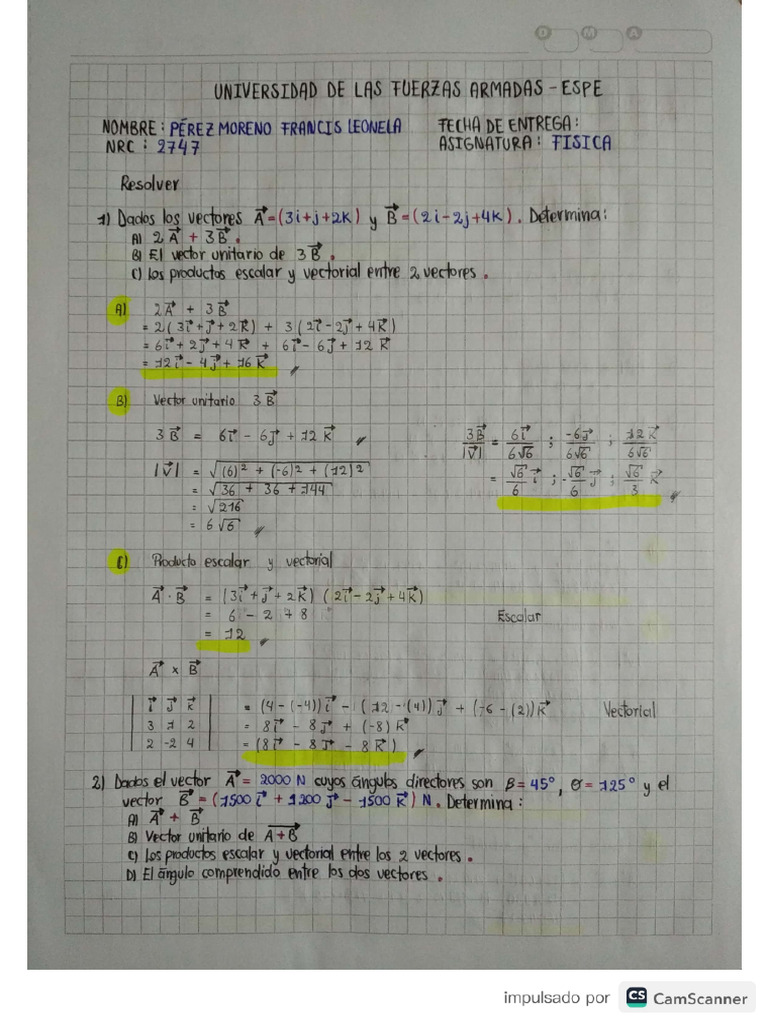 D M A
UNIVERSIDAD DE LAS FUERZAS ARMADAS - ESPE
NOMBRE : PÉREZ MORENO FRANCIS LEONELA FECHA DE ENTREGA :
NRC : 2747 ASIGNATURA : FISICA
Resolver
1) Dados los vectores A⃗=(3i+j+2k) y B⃗=(2i-2j+4k). Determina:
A) 2A⃗ + 3B⃗.
B) El vector unitario de 3B⃗.
C) los productos escalar y vectorial entre 2 vectores.
A) 2A⃗ + 3B⃗
= 2(3i⃗+j⃗+2k⃗) + 3(2i⃗-2j⃗+4k⃗)
= 6i⃗+2j⃗+4k⃗ + 6i⃗-6j⃗+12k⃗
= 12i⃗-4j⃗+16k⃗
B) Vector unitario 3B⃗
3B⃗ = 6i⃗ - 6j⃗ + 12k⃗
3B⃗/|V⃗| = 6i⃗/6√6 ; -6j⃗/6√6 ; 12k⃗/6√6
|V⃗| = √(6)² + (-6)² + (12)²
= √36 + 36 + 144
= √6/6 i⃗ ; -√6/6 j⃗ ; √6/3 k⃗
= √216
= 6√6
C) Producto escalar y vectorial
A⃗ · B⃗ = (3i⃗+j⃗+2k⃗) (2i⃗-2j⃗+4k⃗)
= 6 - 2 + 8 Escalar
= 12
A⃗ x B⃗
| i⃗ j⃗ k⃗ | = (4-(-4))i⃗ - (12-(4))j⃗ + (-6-(2))k⃗ Vectorial
| 3 1 2 | = 8i⃗ - 8j⃗ + (-8)k⃗
| 2 -2 4 | = (8i⃗ - 8j⃗ - 8k⃗)
2) Dados el vector A⃗ = 2000 N cuyos ángulos directores son β = 45°, σ = 125° y el
vector B⃗ = (1500i⃗ + 1200j⃗ - 1500k⃗) N. Determina :
A) A⃗ + B⃗
B) Vector unitario de A+B⃗
C) Los productos escalar y vectorial entre los 2 vectores.
D) El ángulo comprendido entre los dos vectores.
impulsado por CS CamScanner